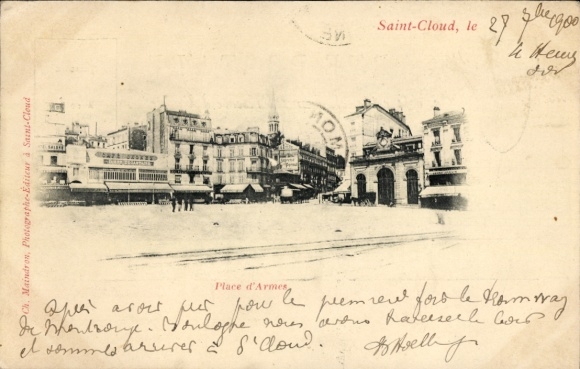 Saint-Cloud, le 27 7bre 1900
4 Heures
MON
Ch. Maindron, Photographe-Editeur à Saint-Cloud
Place d'Armes
Après avoir pris pour la première fois le Tramway
de Montrouge Boulogne nous avons traversé le bois
et sommes arrivés à St Cloud.